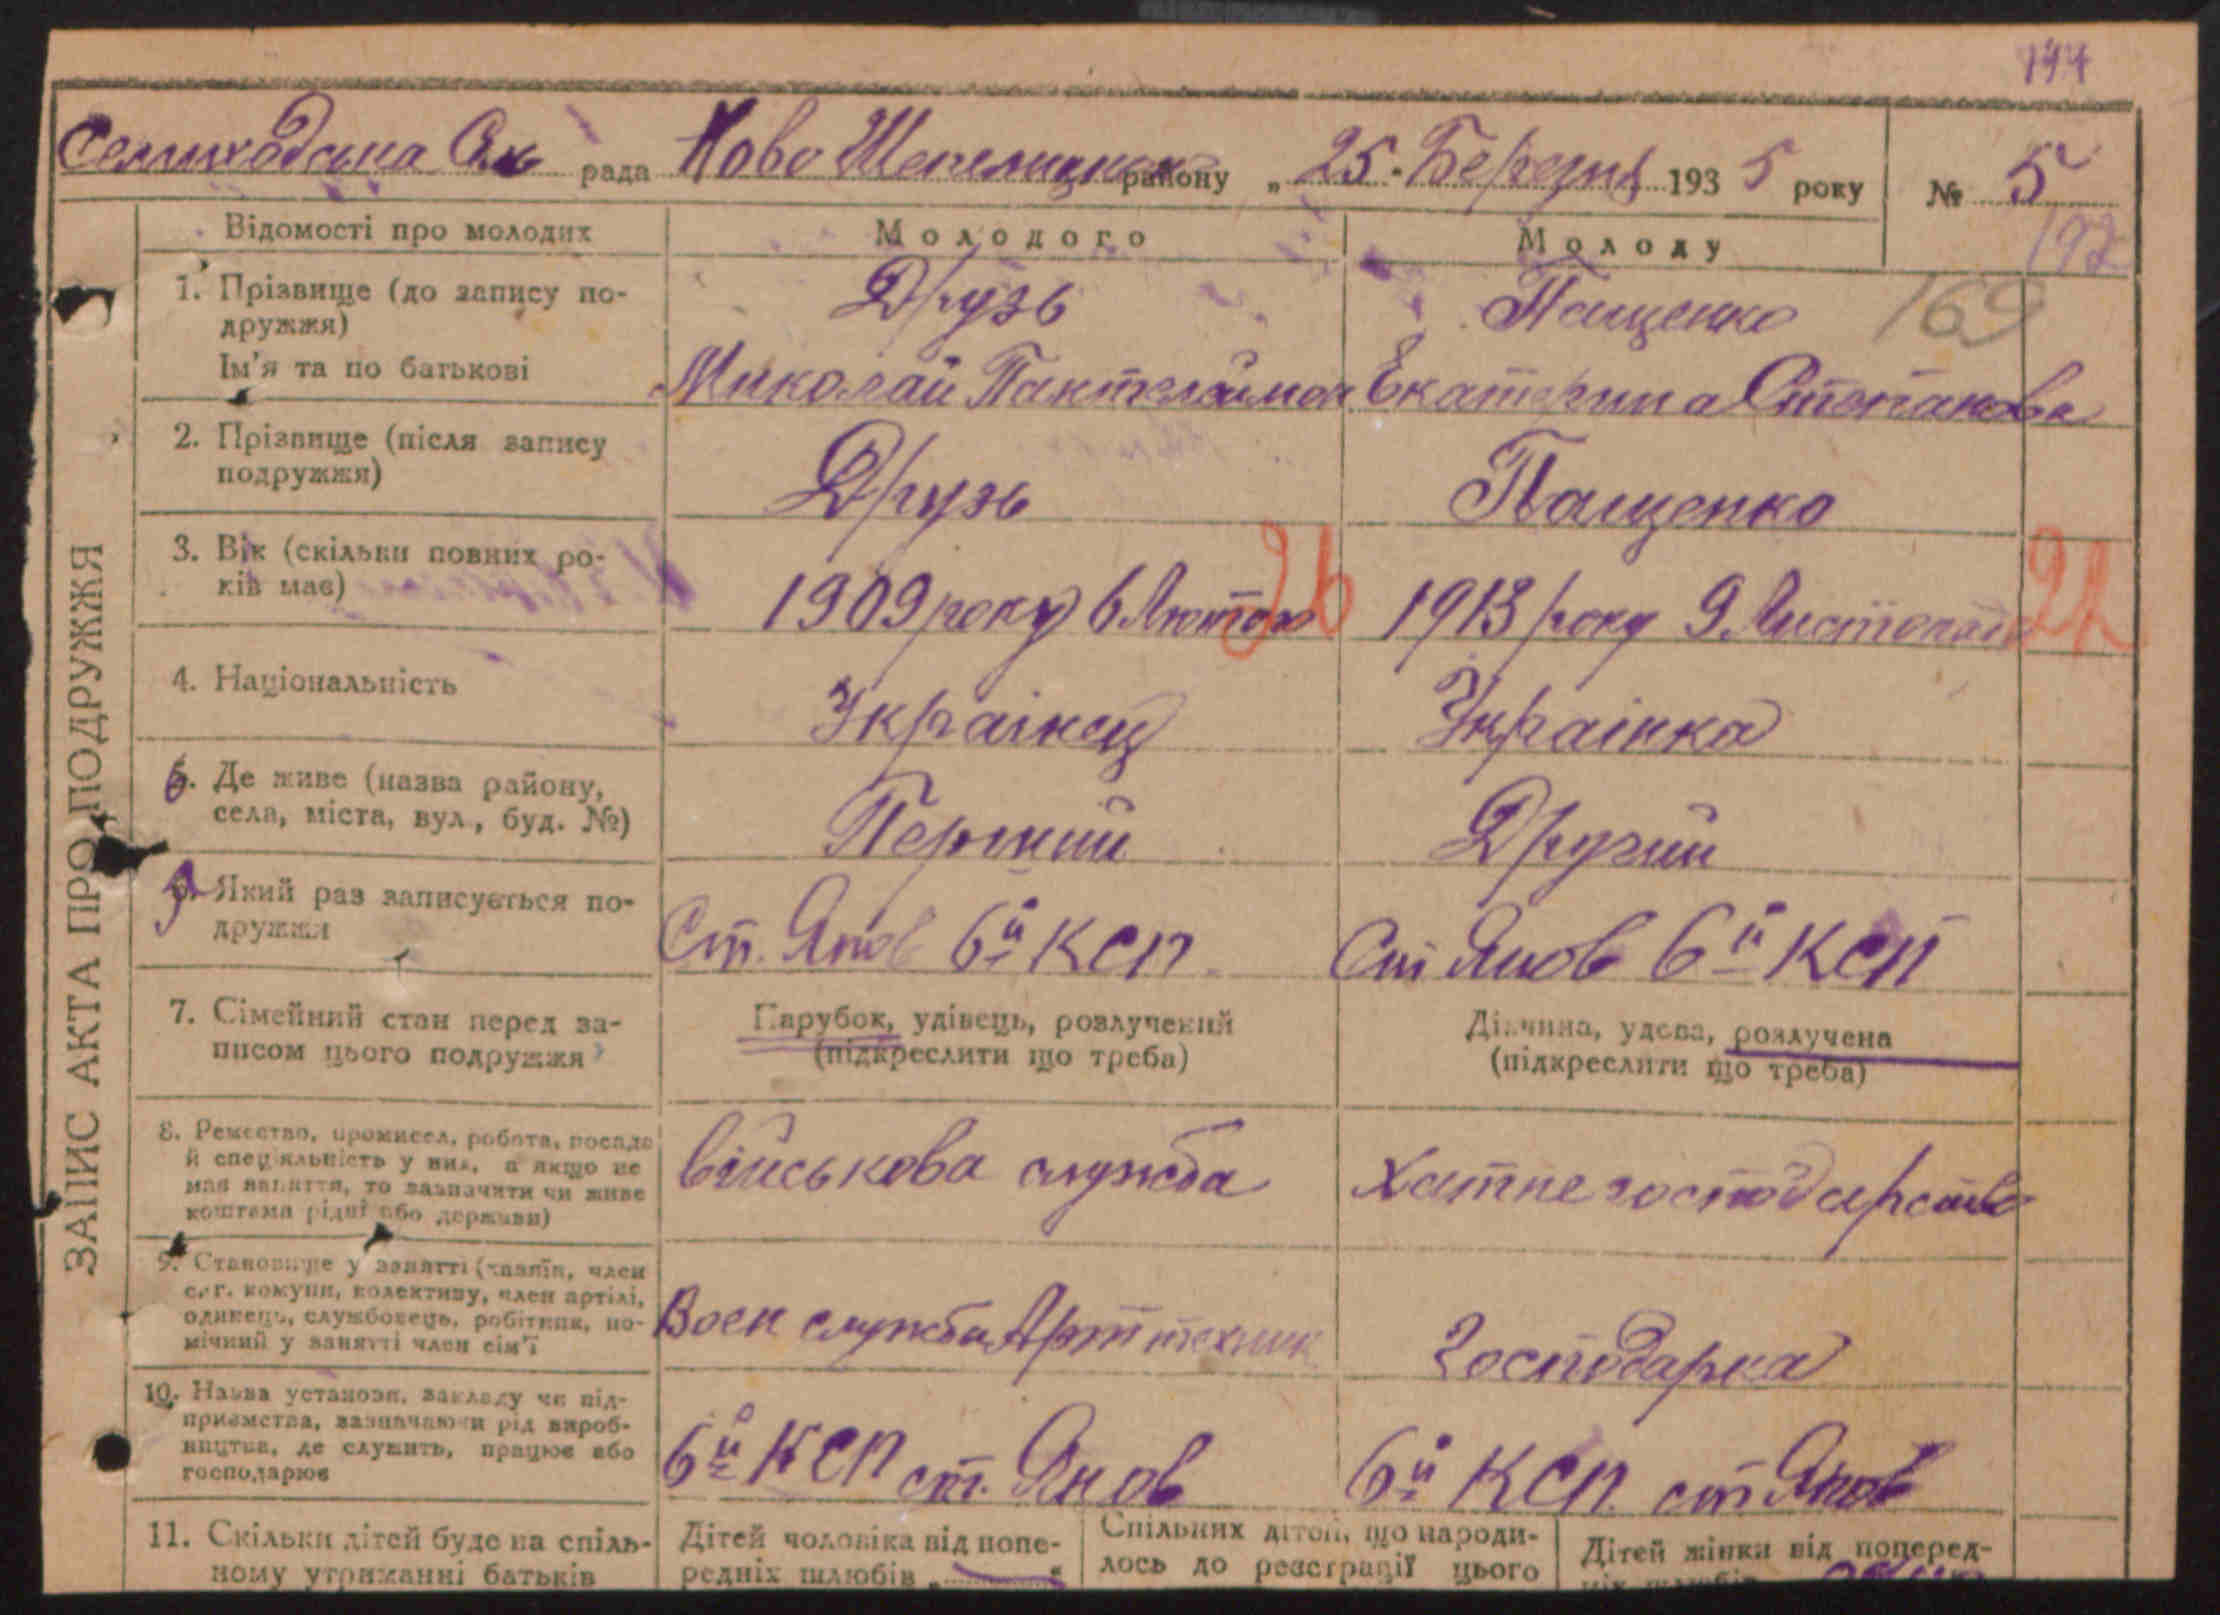 144
Семиходська С/к рада Ново Шепелицького району „25" Березня 1935 року № 5
197
Відомості про молодих Молодого Молоду
1. Прізвище (до запису по- Друзь Пащенко 169
дружжя)
Ім'я та по батькові Миколай Пантелеймон Екатерина Степановна
2. Прізвище (після запису
подружжя) Друзь Пащенко
3. Вік (скільки повних ро- 26 21
ків має) 1909 року 6 Лютого 1913 року 9 Листопада
4. Національність Українец Українка
6. Де живе (назва району,
села, міста, вул., буд. №) Перший Другий
5. Який раз записується по-
дружжя Ст. Янов 6й КСП Ст Янов 6й КСП
7. Сімейний стан перед за- Парубок, удівець, розлучений Дівчина, удова, розлучена
писом цього подружжя (підкреслити що треба) (підкреслити що треба)
8. Ремество, промисел, робота, посада
й спеціяльність у них, а якщо не військова служба Хатне господарство
має заняття, то зазначити чи живе
коштами рідні або держави)
9. Становище у занятті (хазяїн, член
с.-г. комуни, колективу, член артілі,
одинець, службовець, робітник, по- Воен служба Арт техник Господарка
мічний у занятті член сім'ї
10. Назва установи, закладу чи під-
приємства, зазначаючи рід вироб-
ництва, де служить, працює або 6й КСП ст. Янов 6й КСП ст Янов
господарює
11. Скільки дітей буде на спіль- Дітей чоловіка від попе- Спільних дітей, що народи- Дітей жінки від поперед-
ному утриманні батьків редніх шлюбів „ " лось до реєстрації цього ніх шлюбів
ЗАПИС АКТА ПРО ПОДРУЖЖЯ